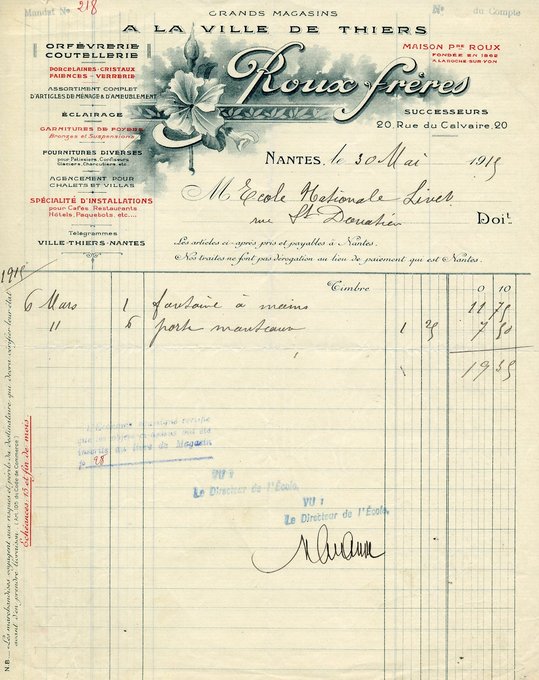 Mandat No 218
GRANDS MAGASINS
No du Compte
A LA VILLE DE THIERS
ORFÈVRERIE
COUTELLERIE
PORCELAINES-CRISTAUX
FAIENCES - VERRERIE
ASSORTIMENT COMPLET
D'ARTICLES DE MÉNAGE & D'AMEUBLEMENT
ÉCLAIRAGE
GARNITURES DE FOYERS
Bronzes et Suspensions
FOURNITURES DIVERSES
pour Patissiers, Confiseurs,
Glaciers, Charcutiers, etc.
AGENCEMENT POUR
CHALETS ET VILLAS
SPÉCIALITÉ D'INSTALLATIONS
pour Cafés, Restaurants
Hôtels, Paquebots, etc....
Télégrammes
VILLE-THIERS-NANTES
MAISON Pre ROUX
FONDÉE EN 1862
A LAROCHE-SUR-YON
Roux frères
SUCCESSEURS
20, Rue du Calvaire, 20
NANTES, le 30 Mai 1915
M Ecole Nationale Livet
rue St Donatien
Doit
Les articles ci-après pris et payables à Nantes.
Nos traites ne font pas dérogation au lieu de paiement qui est Nantes.
1915
Timbre 0 10
6 Mars 1 fontaine à mains 11 75
11 6 porte manteaux 1 25 7 50
19 35
insérés au livre de Magasin
fo 98
VU :
Le Directeur de l'École,
VU :
Le Directeur de l'École,
Echéances 15 et fin de mois.
N.B. Les marchandises voyagent aux risques et périls du destinataire qui devra vérifier leur état
avant d'en prendre livraison. (Art. 105 du Code de Commerce)